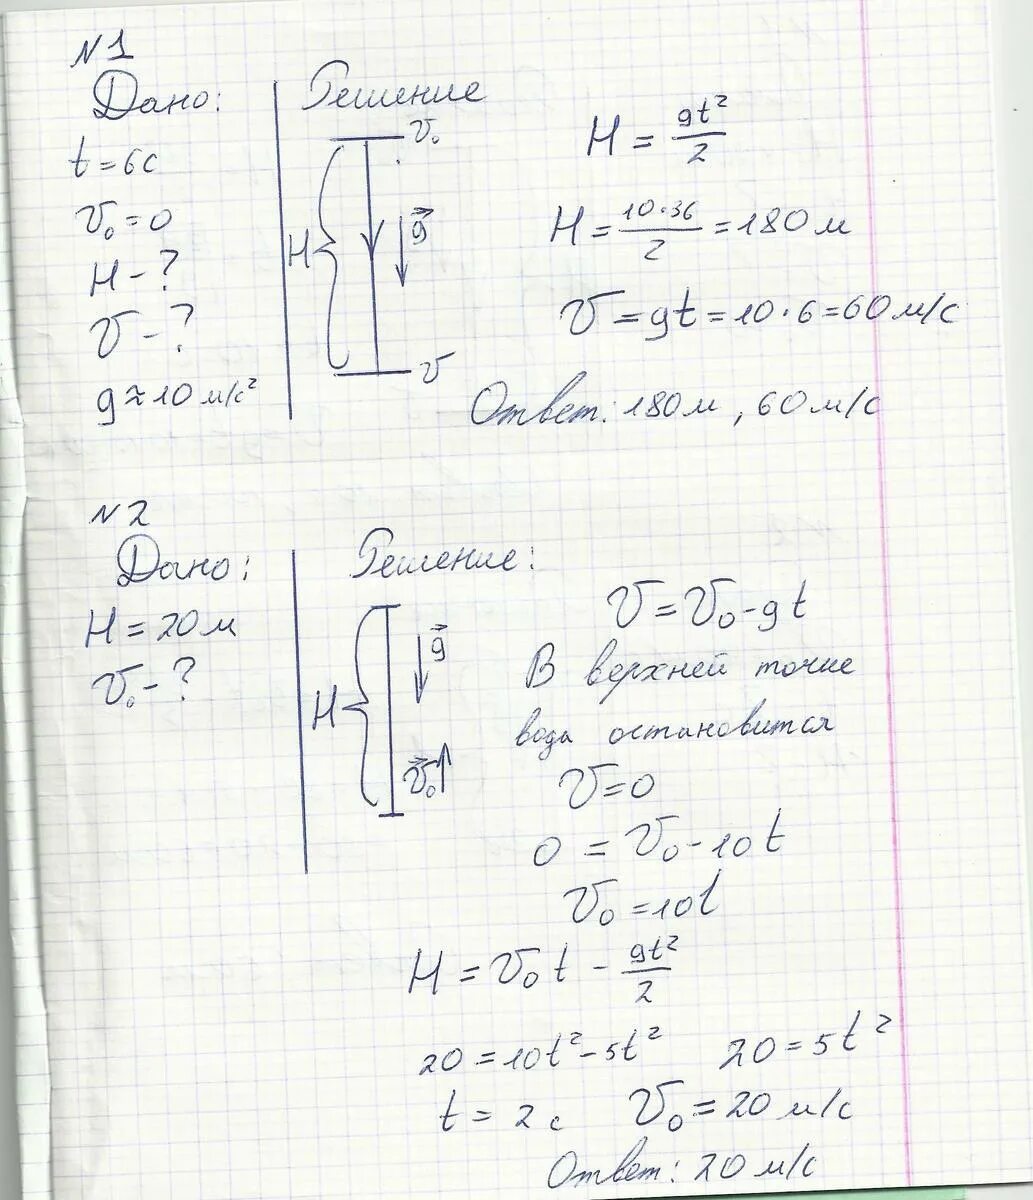 N1
Дано:
t = 6c
v₀ = 0
H - ?
v - ?
g ≈ 10 м/с²
Решение
v₀
H
g
v
H = gt²/2
H = 10·36/2 = 180 м
v = gt = 10·6 = 60 м/с
Ответ: 180м, 60 м/с
N2
Дано:
H = 20 м
v₀ - ?
Решение:
g
H
v₀
v = v₀ - gt
В верхней точке
вода остановится
v = 0
0 = v₀ - 10t
v₀ = 10t
H = v₀t - gt²/2
20 = 10t² - 5t² 20 = 5t²
t = 2 с v₀ = 20 м/с
Ответ: 20 м/с